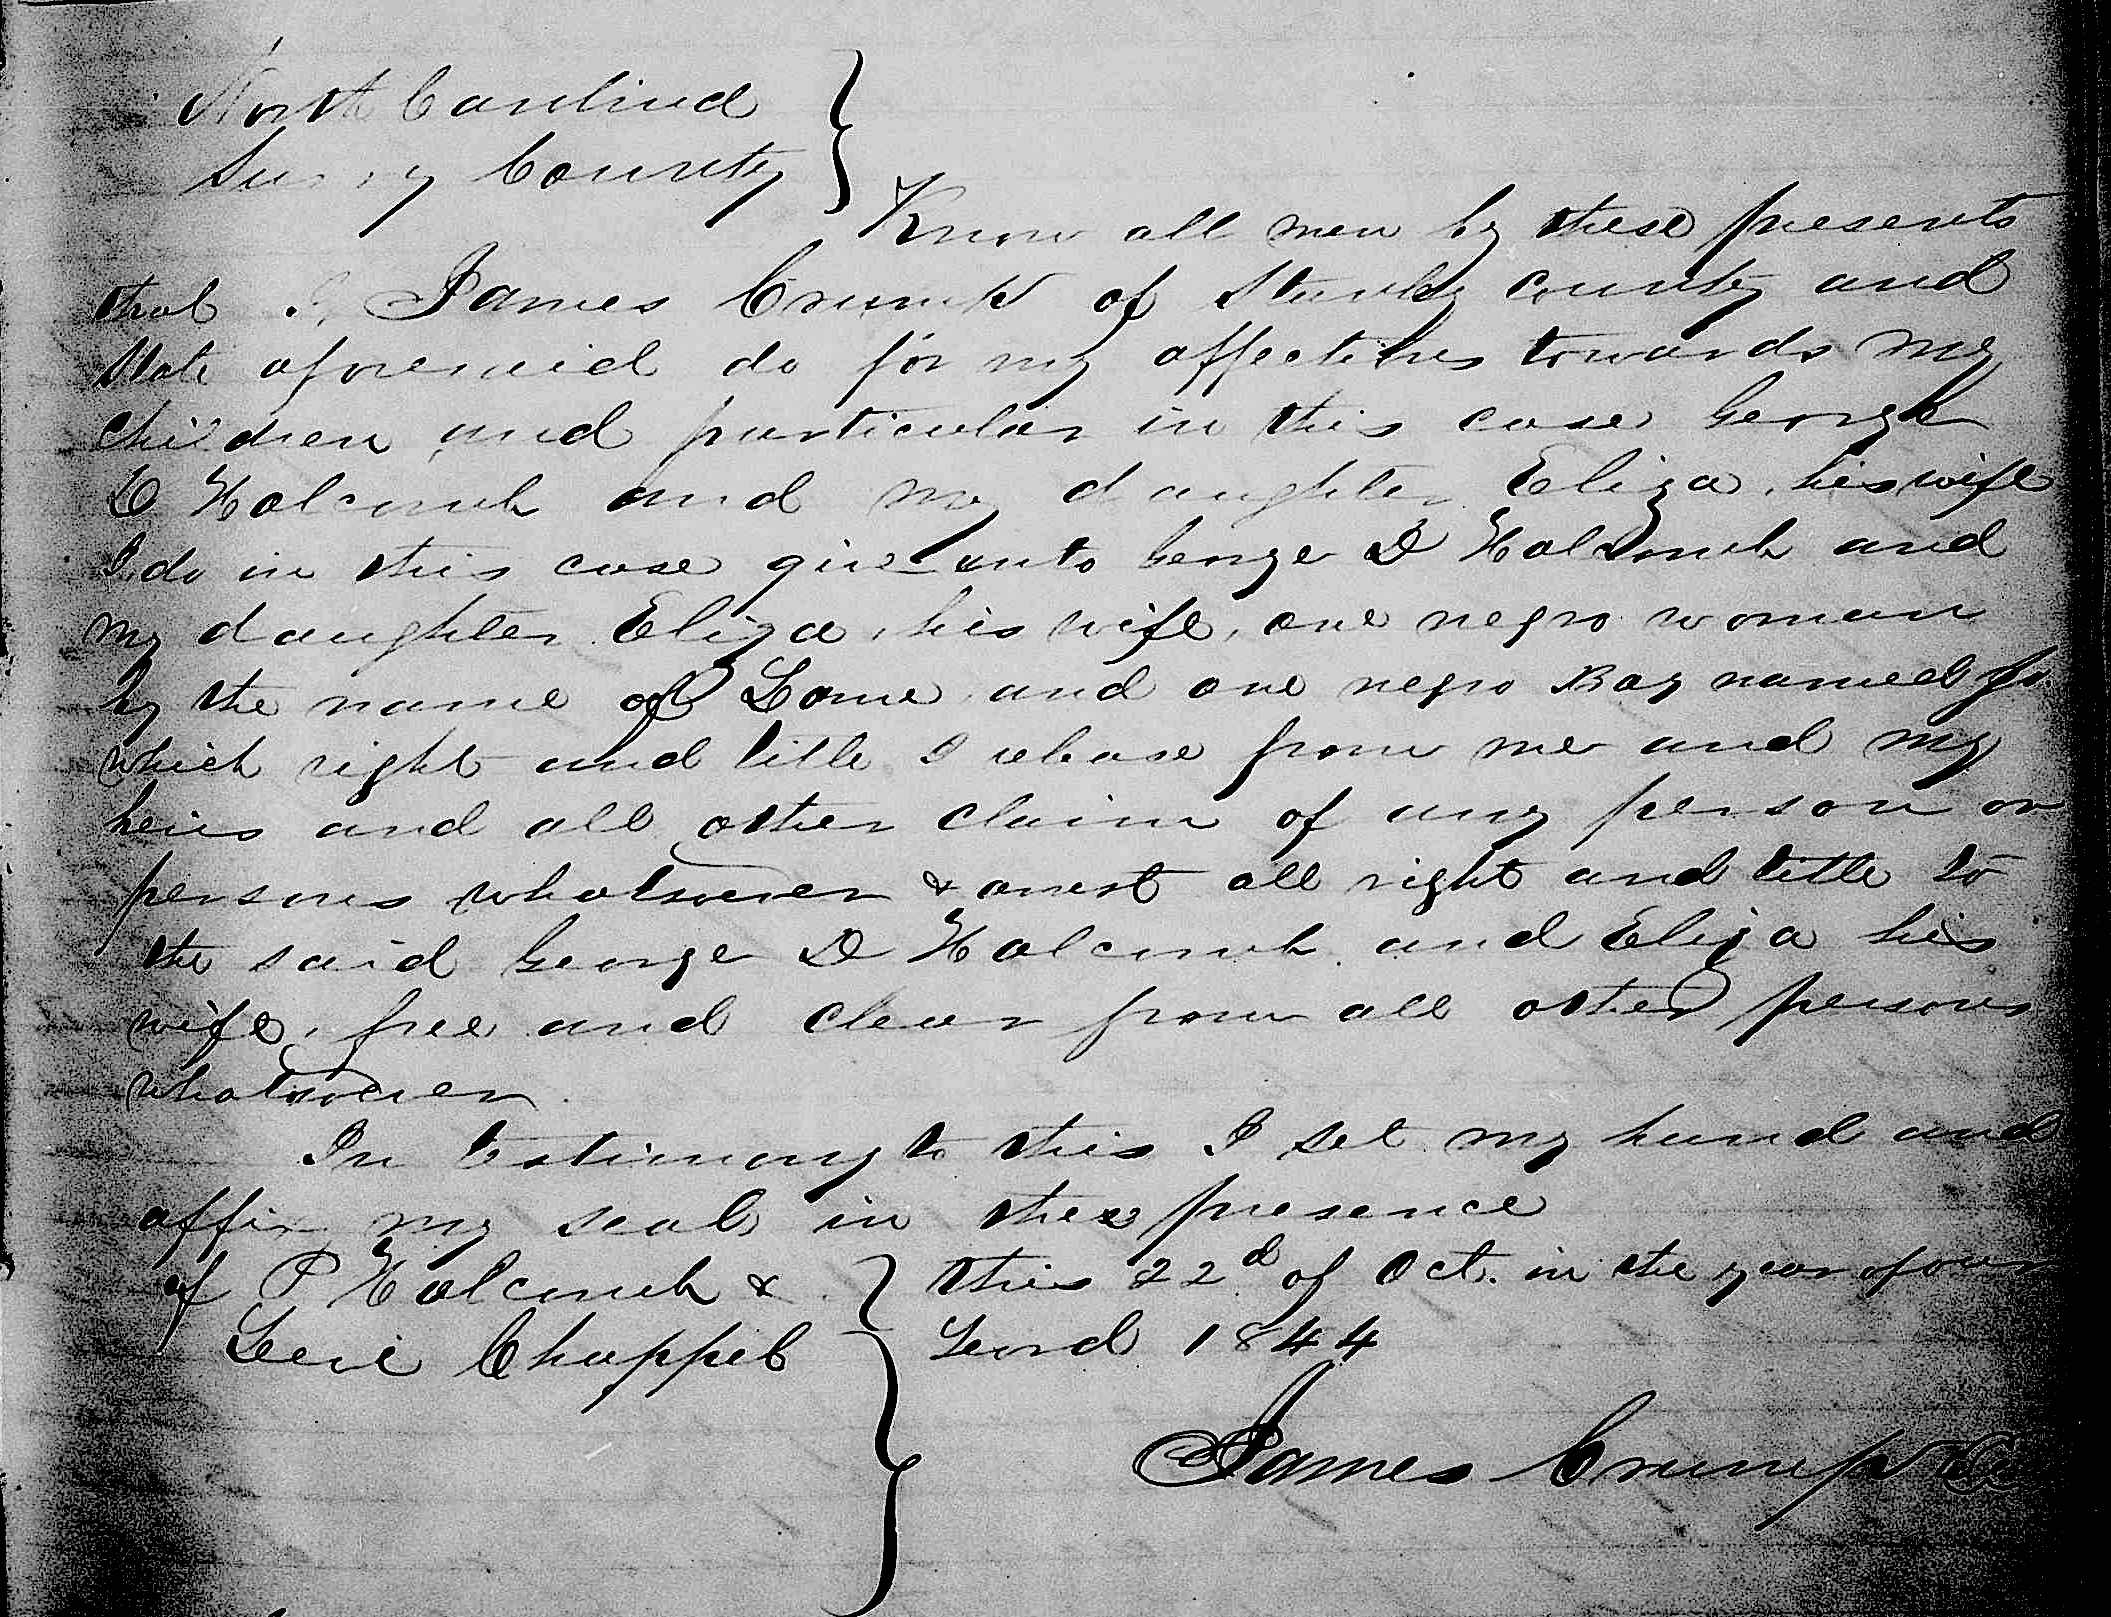 North Carolina
Surry County
Know all men by these presents
that I, James Crump of county and
State aforesaid do for my affections towards my
children and particular in this case George
D Holcomb and my daughter Eliza, his wife
I do in this case give unto George D Holcomb and
my daughter Eliza, his wife, one negro woman
by the name of and one negro Boy named
which right and title I release from me and my
heirs and all other claim of any person or
persons whatsoever & all right and title to
the said George D Holcomb and Eliza his
wife, free and clear from all other persons
whatsoever.
In testimony to this I set my hand and
affix my seal in these presence
of P Holcomb & this 22d of Oct. in the year of our
Levi Chappel Lord 1844
James Crump